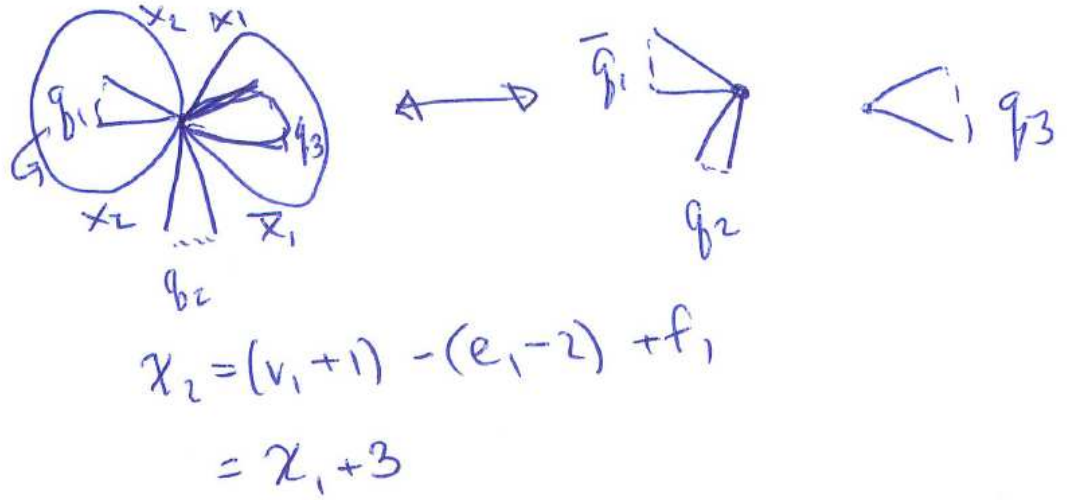 x₂ x₁
q₁ q₃
G
x₂ x̄₁
q₂
q̄₁ q₂ q₃
χ₂ = (v₁ + 1) - (e₁ - 2) + f₁
= χ₁ + 3